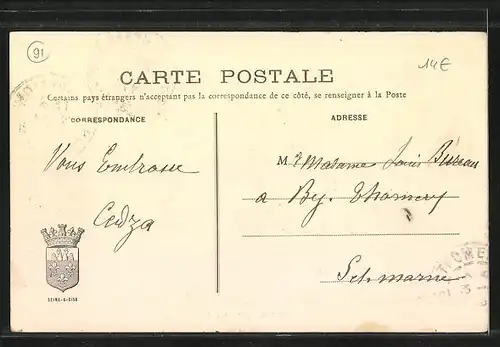 91
14€
CARTE POSTALE
Certains pays étrangers n'acceptant pas la correspondance de ce côté, se renseigner à la Poste
CORRESPONDANCE
ADRESSE
Vous Embrasse
M. & Madame Louis Bureau
a By. Thomery
Set Marne
SEINE-&-OISE